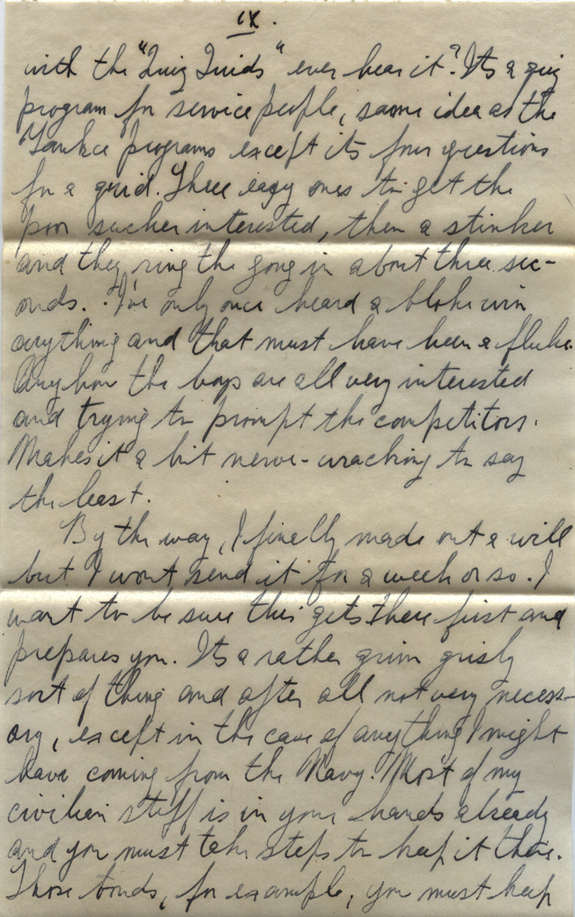 IX.
with the "Quiz Quids" ever hear it? Its a quiz
program for service people, same idea as the
Yankee programs except its four questions
for a quid. Three easy ones to get the
poor sucker interested, then a stinker
and they ring the gong in about three sec-
onds. I've only once heard a bloke win
anything and that must have been a fluke.
Anyhow the boys are all very interested
and trying to prompt the competitors.
Makes it a bit nerve-wracking to say
the least.
By the way, I finally made out a will
but I wont send it for a week or so. I
want to be sure this gets there first and
prepares you. Its a rather grim grisly
sort of thing and after all not very necess-
ary, except in the case of anything I might
have coming from the Navy. Most of my
civilian stuff is in your hands already
and you must take steps to keep it there.
Those bonds, for example, you must keep